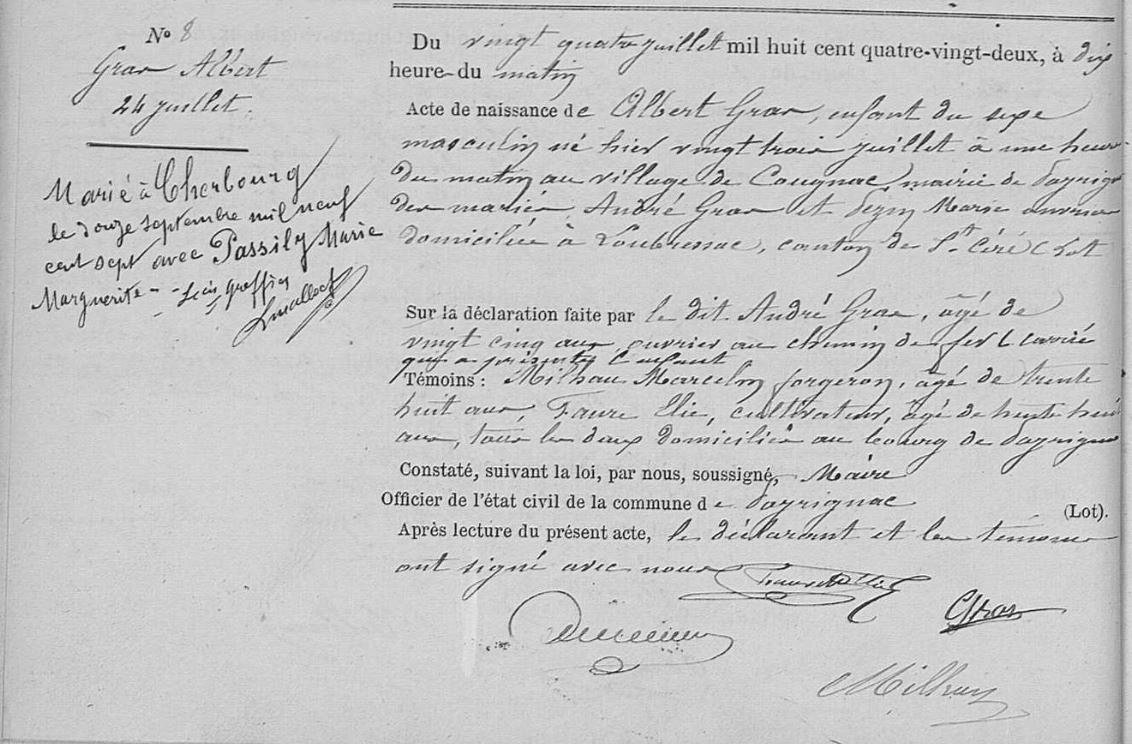 N° 8
Gras Albert
24 juillet.
Marié à Cherbourg
le douze septembre mil neuf
cent sept avec Passily Marie
Marguerite
Du vingt quatre juillet mil huit cent quatre-vingt-deux, à dix
heure du matin
Acte de naissance de Albert Gras, enfant du sexe
masculin né hier vingt trois juillet à une heure
du matin au village de Cougnac, mairie de Payrignac
des mariés André Gras et Marie
domiciliés à Loubressac, canton de St Céré Lot
Sur la déclaration faite par le dit André Gras, âgé de
vingt cinq ans, ouvrier au chemin de fer
qui a présenté l'enfant
Témoins : Milhau Marcelin forgeron, âgé de trente
huit ans, Faure Elie, cultivateur, âgé de
ans, tous les deux domiciliés au bourg de Payrignac
Constaté, suivant la loi, par nous, soussigné, Maire
Officier de l'état civil de la commune de Payrignac (Lot).
Après lecture du présent acte, le déclarant et les témoins
ont signé avec nous
Gras
Milhau